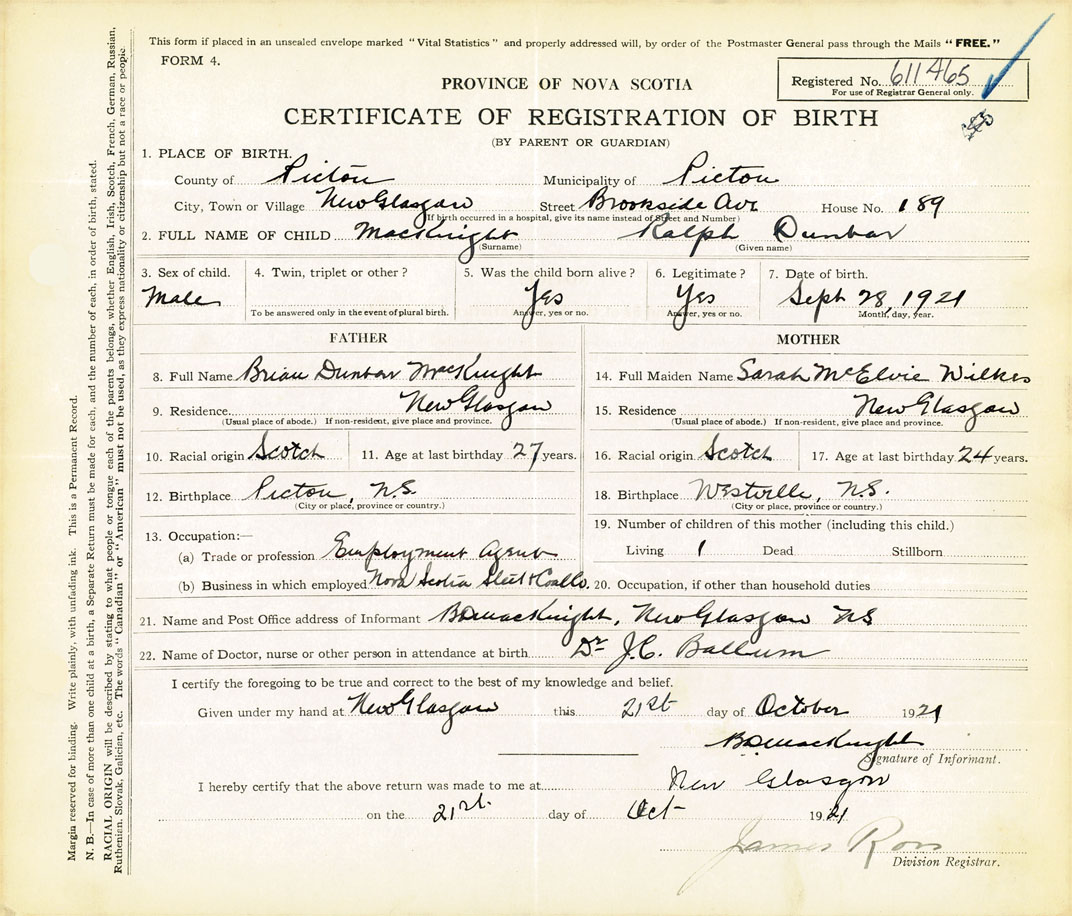 This form if placed in an unsealed envelope marked "Vital Statistics" and properly addressed will, by order of the Postmaster General pass through the Mails "FREE."
FORM 4.
Registered No. 611465
For use of Registrar General only.
PROVINCE OF NOVA SCOTIA
CERTIFICATE OF REGISTRATION OF BIRTH
(BY PARENT OR GUARDIAN)
1. PLACE OF BIRTH.
County of Pictou Municipality of Pictou
City, Town or Village New Glasgow Street Brookside Ave House No. 189
If birth occurred in a hospital, give its name instead of Street and Number)
2. FULL NAME OF CHILD MacKnight Ralph Dunbar
(Surname) (Given name)
3. Sex of child. 4. Twin, triplet or other? 5. Was the child born alive? 6. Legitimate? 7. Date of birth.
Male Yes Yes Sept 28, 1921
To be answered only in the event of plural birth. Answer, yes or no. Answer, yes or no. Month, day, year.
FATHER MOTHER
8. Full Name Brian Dunbar MacKnight 14. Full Maiden Name Sarah McElvie Wilkes
9. Residence New Glasgow 15. Residence New Glasgow
(Usual place of abode.) If non-resident, give place and province. (Usual place of abode.) If non-resident, give place and province.
10. Racial origin Scotch 11. Age at last birthday 27 years. 16. Racial origin Scotch 17. Age at last birthday 24 years.
12. Birthplace Pictou, N.S. 18. Birthplace Westville, N.S.
(City or place, province or country.) (City or place, province or country.)
13. Occupation:— 19. Number of children of this mother (including this child.)
(a) Trade or profession Employment Agent Living 1 Dead Stillborn
(b) Business in which employed Nova Scotia Steel & Coal Co. 20. Occupation, if other than household duties
21. Name and Post Office address of Informant BDMacKnight, New Glasgow NS
22. Name of Doctor, nurse or other person in attendance at birth. Dr J.C. Ballum
I certify the foregoing to be true and correct to the best of my knowledge and belief.
Given under my hand at New Glasgow this 21st day of October 1921
BDMacKnight
Signature of Informant.
I hereby certify that the above return was made to me at New Glasgow
on the 21st. day of Oct 1921
James Ross
Division Registrar.
Margin reserved for binding. Write plainly, with unfading ink. This is a Permanent Record.
N. B.—In case of more than one child at a birth, a Separate Return must be made for each, and the number of each, in order of birth, stated.
RACIAL ORIGIN will be described by stating to what people or tongue each of the parents belongs, whether English, Irish, Scotch, French, German, Russian,
Ruthenian, Slovak, Galician, etc. The words "Canadian" or "American" must not be used, as they express nationality or citizenship but not a race or people.